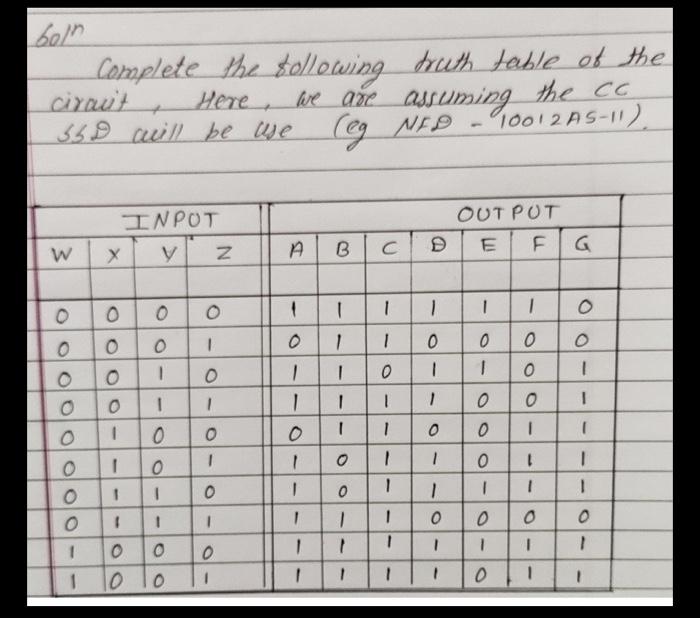 Soln
Complete the following truth table of the
circuit, Here, we are assuming the CC
SSD will be use (eg NFD - 10012AS-11).
INPUT OUTPUT
W X Y Z A B C D E F G
0 0 0 0 1 1 1 1 1 1 0
0 0 0 1 0 1 1 0 0 0 0
0 0 1 0 1 1 0 1 1 0 1
0 0 1 1 1 1 1 1 0 0 1
0 1 0 0 0 1 1 0 0 1 1
0 1 0 1 1 0 1 1 0 1 1
0 1 1 0 1 0 1 1 1 1 1
0 1 1 1 1 1 1 0 0 0 0
1 0 0 0 1 1 1 1 1 1 1
1 0 0 1 1 1 1 1 0 1 1